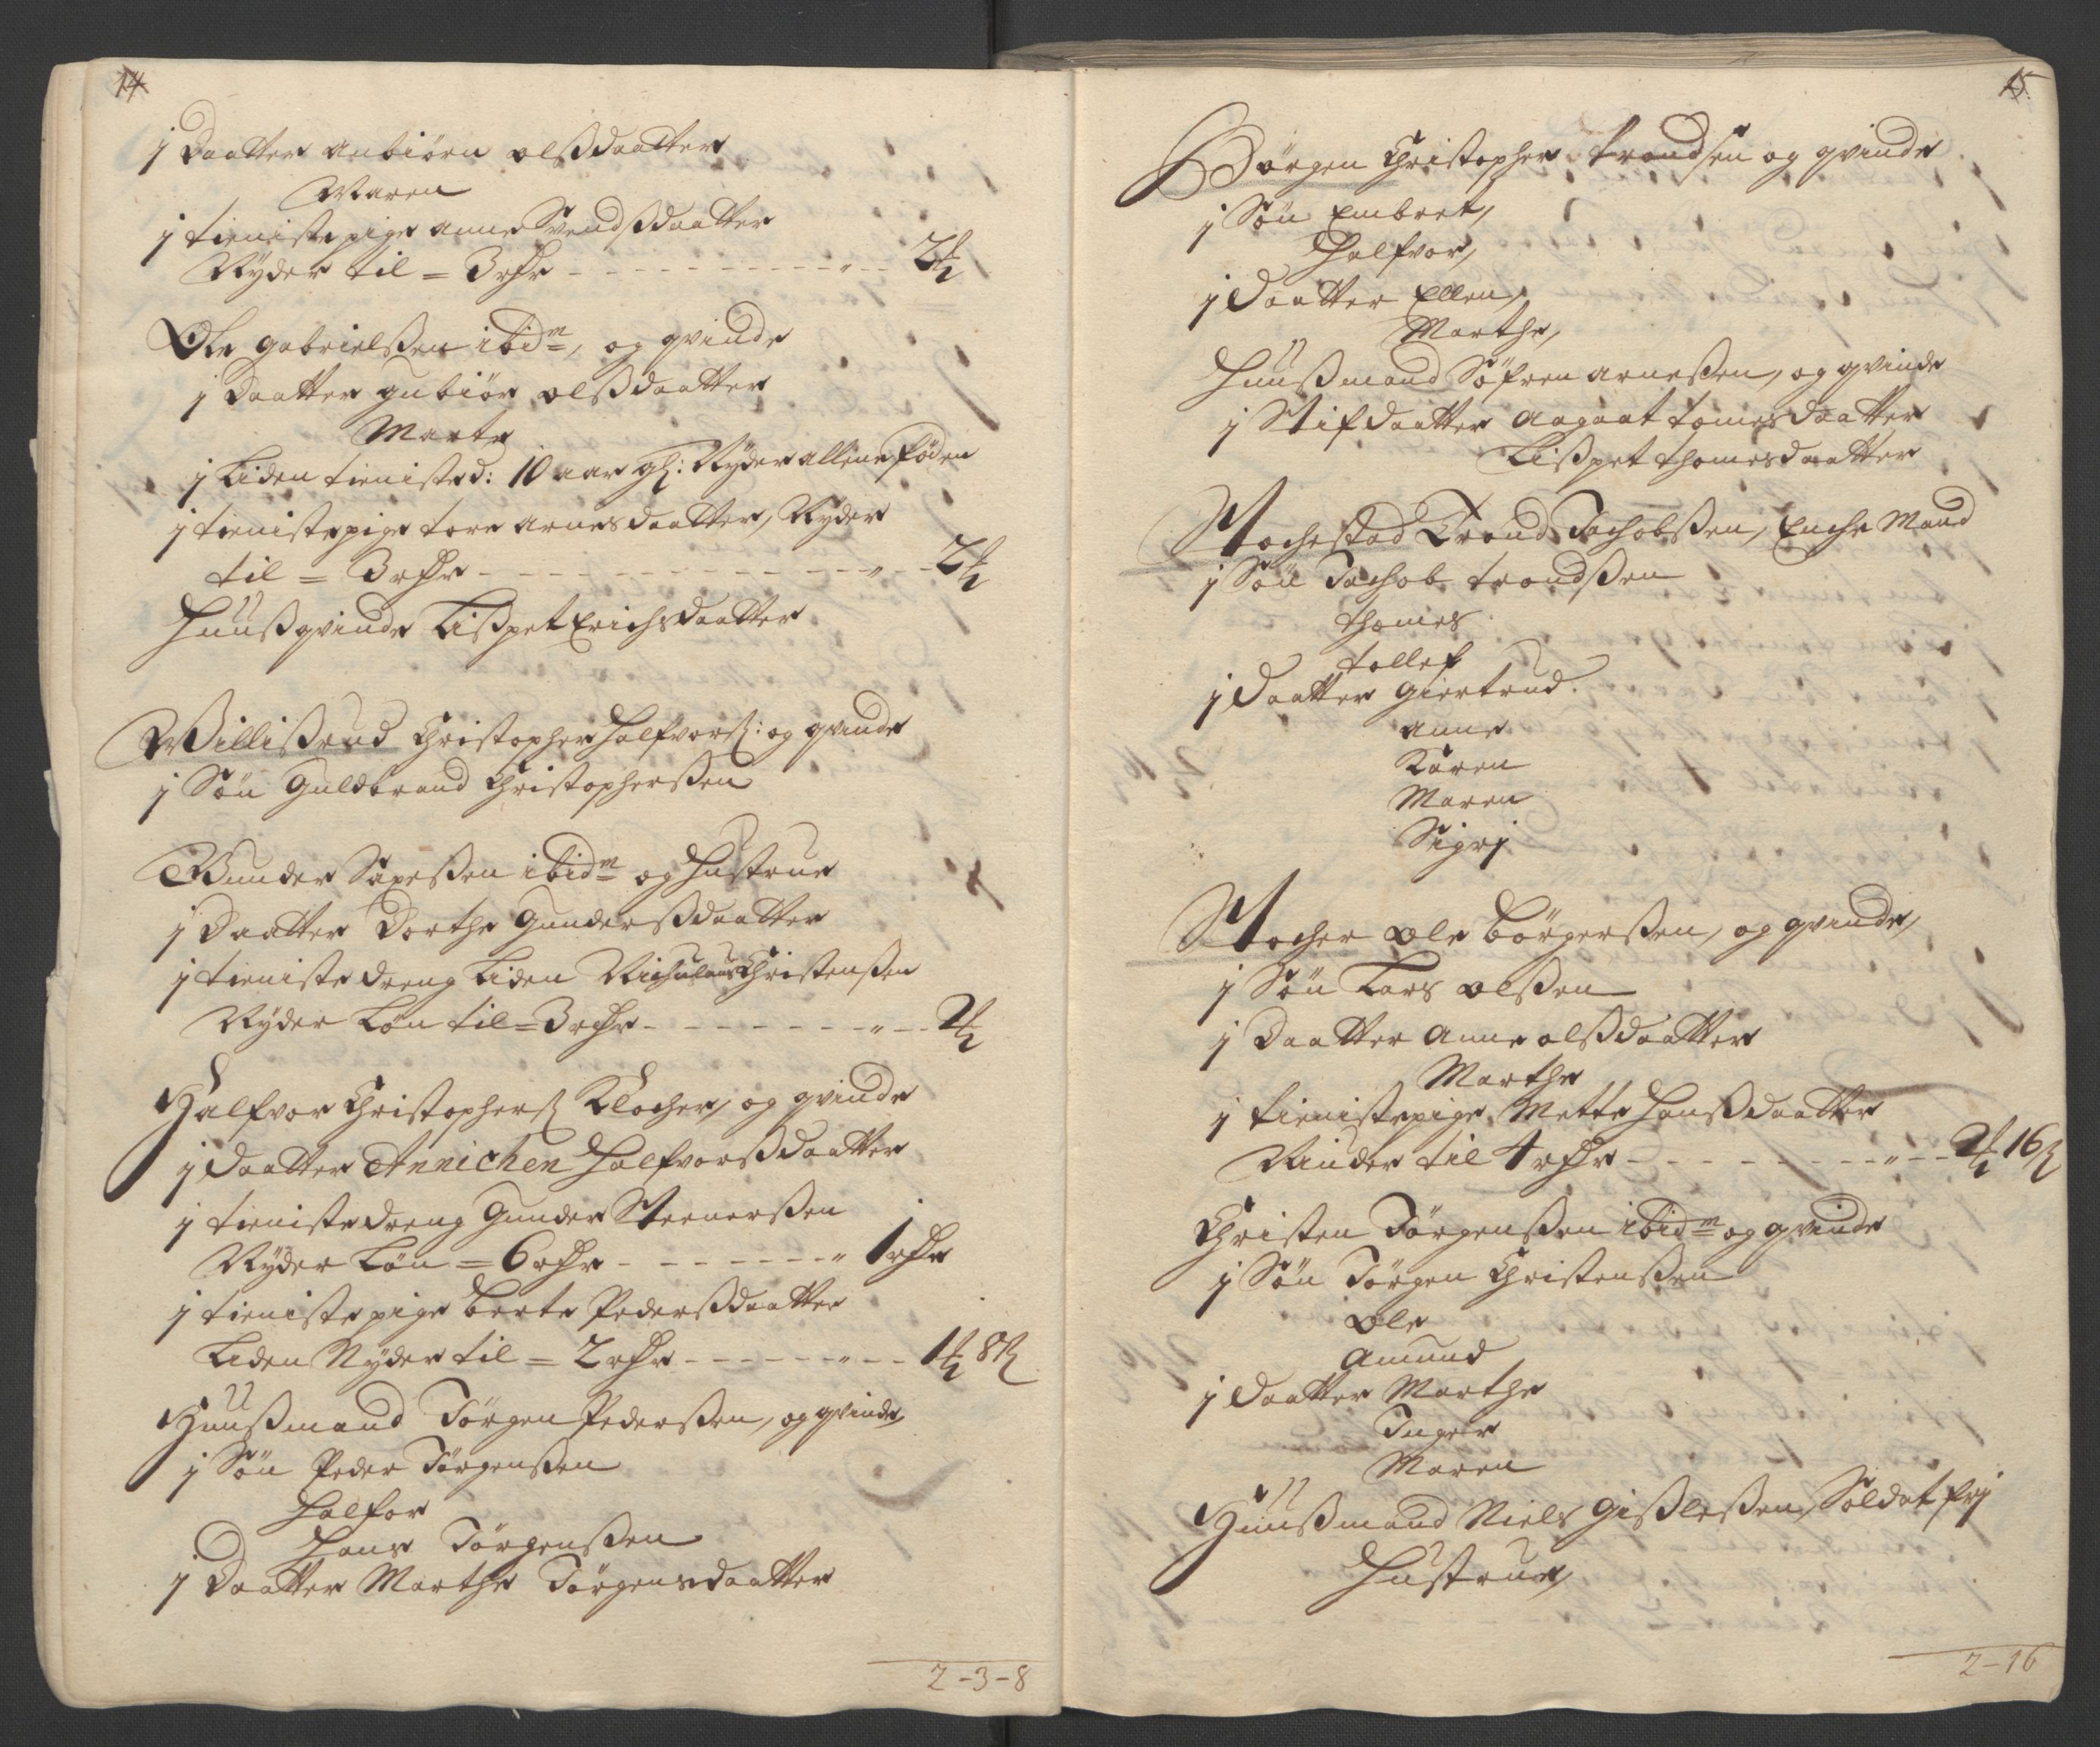 14
1 Daatter Anbiörn olßdaatter
Maren
1 tieniste pige anne Svendßdaatter
Nyder til = 3 rdr - - - 2 ₰
Ole gabrielßen ibidm, og qvinde
1 Daatter gubiör olßdaatter
Marte
1 Liden tienisted: 10 aar gl: Nyder allene föden
1 tienistepige tore arnesdaatter, Nyder
til = 3 rdr - - - 2
Huußqvinde Lißpet Erichsdaatter
Willißrud Christopher Halfvorß: og qvinde
1 Sön Guldbrand Christopherßen
Gunder Saxeßen ibidm og Hustrue
1 Daatter Dorthe Gunderßdaatter
1 tieniste dreng Liden Nichulaus Christenßen
Nyder Lön til = 3 rdr - - - 2
Halfvor Christopherß Klocher, og qvinde
1 daatter Annichen Halfvorßdaatter
1 tieniste dreng Gunder Steenerßen
Nyder Lön = 6 rdr - - - 1 rdr
1 tieniste pige berte Pederßdaatter
Liden Nyder til = 2 rdr - - - 1 8 ß
Huußmand Jörgen Pederßen, og qvinde
1 Sön Peder Jörgenßen
Halfor
Hans Jörgenßen
1 Daatter Marthe Jörgensdaatter
2-3-8
15
Börgen Christopher trondsen og qvinde
1 Sön Embret,
Halfvor,
1 daatter Ellen,
Marthe,
Huußmand Söfren arneßen, og qvinde
1 Stifdaatter Aagaat tomesdaatter
Lißpet thomesdaatter
Stochestad Trond Jachobßen, Enche Mand
1 Sön Jachob trondßen
thomes
tollef
1 daatter giertrud.
anne
Karen
Maren
Sigrj
Stocher ole börgerßen, og qvinde,
1 Sön Lars olßen
1 Daatter Anne olßdaatter
Marthe
1 tienistepige, Mette Hanßdaatter
Niuder til 4 rdr - - - 2 16 ß
Christen Jörgenßen ibidm og qvinde
1 Sön Jörgen Christenßen
Ole
Amund
1 daatter Marthe
Inger
Maren
Huußmand Niels gißleßen, Soldat frj
Hustrue,
2-16